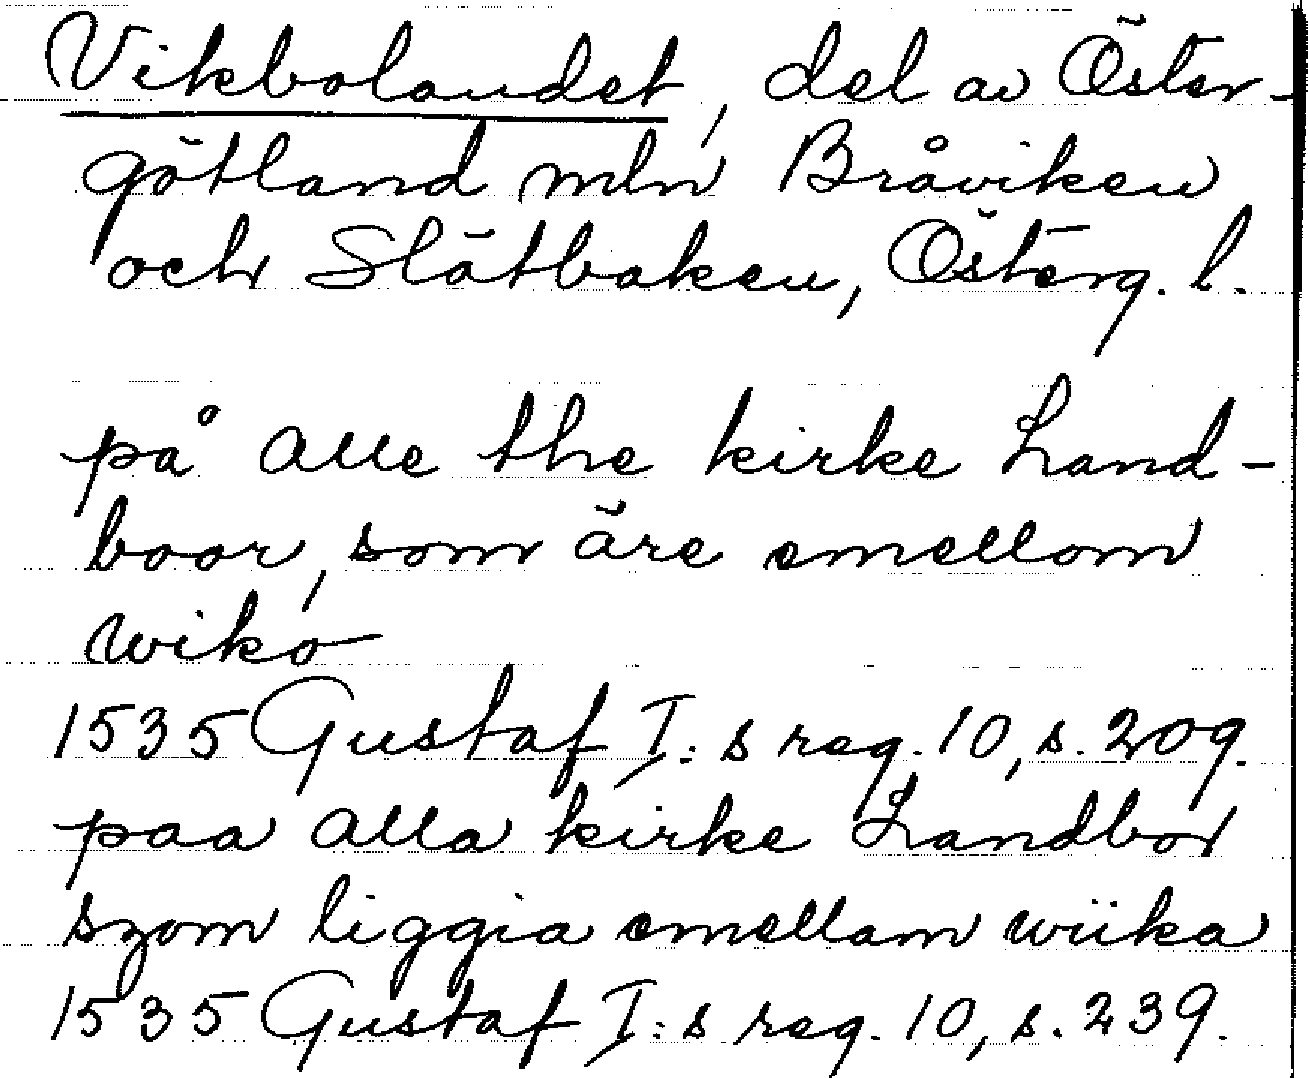 Vikbolandet, del av Öster-
götland mln Bråviken
och Slätbaken, Österg. l.
på alle the kirke Land-
boor, som äre emellom
wiko
1535 Gustaf I:s reg. 10, s. 209.
paa alla kirke Landbor
szom liggia emellam wiika
1535 Gustaf I:s reg. 10, s. 239.